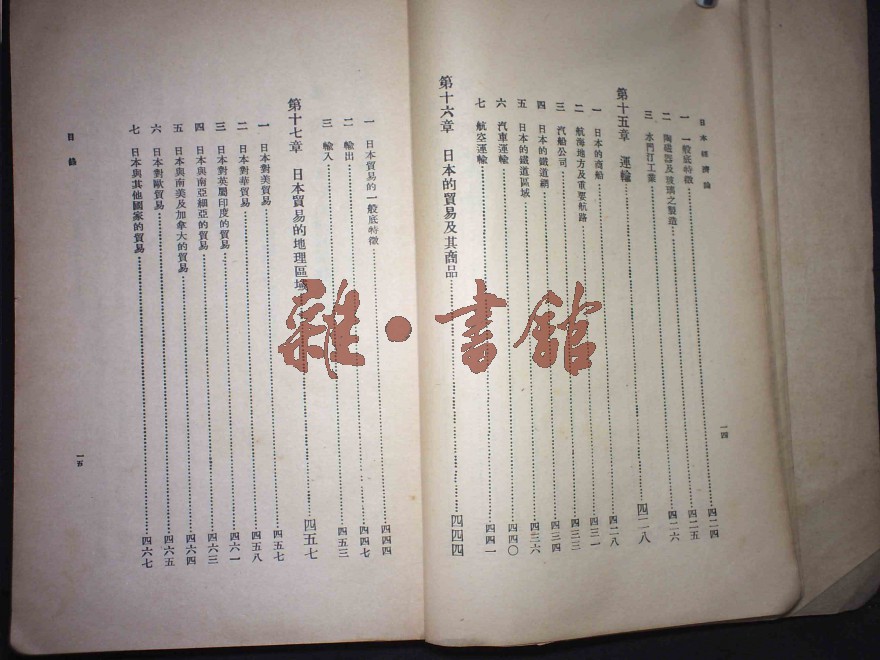 日本經濟論
一四
一　一般底特徵……四二四
二　陶磁器及玻璃之製造……四二五
三　水門汀工業……四二六
第十五章　運輸……四二八
一　日本的商船……四二八
二　航海地方及重要航路……四三一
三　汽船公司……四三三
四　日本的鐵道網……四三四
五　日本的鐵道區域……四三六
六　汽車運輸……四四〇
七　航空運輸……四四一
第十六章　日本的貿易及其商品……四四四
一　日本貿易的一般底特徵……四四四
二　輸出……四四七
三　輸入……四五三
第十七章　日本貿易的地理區域……四五七
一　日本對美貿易……四五七
二　日本對華貿易……四五八
三　日本對英屬印度的貿易……四六一
四　日本與南亞細亞的貿易……四六三
五　日本與南美及加拿大的貿易……四六四
六　日本對歐貿易……四六五
七　日本與其他國家的貿易……四六七
目錄
一五
雜·書館